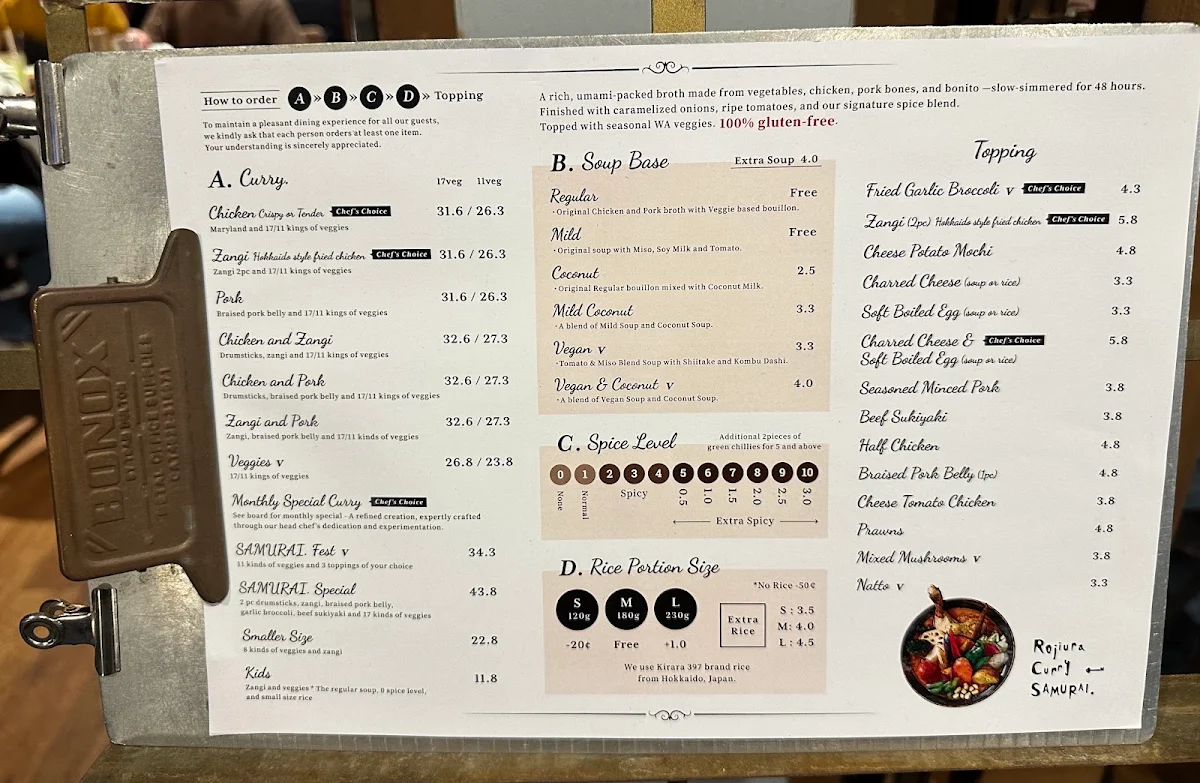 How to order A » B » C » D » Topping
To maintain a pleasant dining experience for all our guests,
we kindly ask that each person orders at least one item.
Your understanding is sincerely appreciated.
A rich, umami-packed broth made from vegetables, chicken, pork bones, and bonito —slow-simmered for 48 hours.
Finished with caramelized onions, ripe tomatoes, and our signature spice blend.
Topped with seasonal WA veggies. 100% gluten-free.
A. Curry. 17veg 11veg
Chicken Crispy or Tender Chef's Choice 31.6 / 26.3
Maryland and 17/11 kings of veggies
Zangi Hokkaido style fried chicken Chef's Choice 31.6 / 26.3
Zangi 2pc and 17/11 kings of veggies
Pork 31.6 / 26.3
Braised pork belly and 17/11 kinds of veggies
Chicken and Zangi 32.6 / 27.3
Drumsticks, zangi and 17/11 kinds of veggies
Chicken and Pork 32.6 / 27.3
Drumsticks, braised pork belly and 17/11 kinds of veggies
Zangi and Pork 32.6 / 27.3
Zangi, braised pork belly and 17/11 kinds of veggies
Veggies v 26.8 / 23.8
17/11 kings of veggies
Monthly Special Curry Chef's Choice
See board for monthly special - A refined creation, expertly crafted
through our head chef's dedication and experimentation.
SAMURAI. Fest v 34.3
11 kinds of veggies and 3 toppings of your choice
SAMURAI. Special 43.8
2 pc drumsticks, zangi, braised pork belly,
garlic broccoli, beef sukiyaki and 17 kinds of veggies
Smaller Size 22.8
8 kinds of veggies and zangi
Kids 11.8
Zangi and veggies * The regular soup, 0 spice level,
and small size rice
B. Soup Base Extra Soup 4.0
Regular Free
・Original Chicken and Pork broth with Veggie based bouillon.
Mild Free
・Original soup with Miso, Soy Milk and Tomato.
Coconut 2.5
・Original Regular bouillon mixed with Coconut Milk.
Mild Coconut 3.3
・A blend of Mild Soup and Coconut Soup.
Vegan v 3.3
・Tomato & Miso Blend Soup with Shiitake and Kombu Dashi.
Vegan & Coconut v 4.0
・A blend of Vegan Soup and Coconut Soup.
C. Spice Level Additional 2pieces of
green chillies for 5 and above
0 1 2 3 4 5 6 7 8 9 10
None Normal Spicy 0.5 1.0 1.5 2.0 2.5 3.0
Extra Spicy
D. Rice Portion Size
*No Rice -50¢
S 120g M 180g L 230g
-20¢ Free +1.0
Extra
Rice
S : 3.5
M: 4.0
L : 4.5
We use Kirara 397 brand rice
from Hokkaido, Japan.
Topping
Fried Garlic Broccoli v Chef's Choice 4.3
Zangi (2pc) Hokkaido style fried chicken Chef's Choice 5.8
Cheese Potato Mochi 4.8
Charred Cheese (soup or rice) 3.3
Soft Boiled Egg (soup or rice) 3.3
Charred Cheese & Chef's Choice 5.8
Soft Boiled Egg (soup or rice)
Seasoned Minced Pork 3.8
Beef Sukiyaki 3.8
Half Chicken 4.8
Braised Pork Belly (1pc) 4.8
Cheese Tomato Chicken 3.8
Prawns 4.8
Mixed Mushrooms v 3.8
Natto v 3.3
Rojiura
Curry
SAMURAI.
BONOX